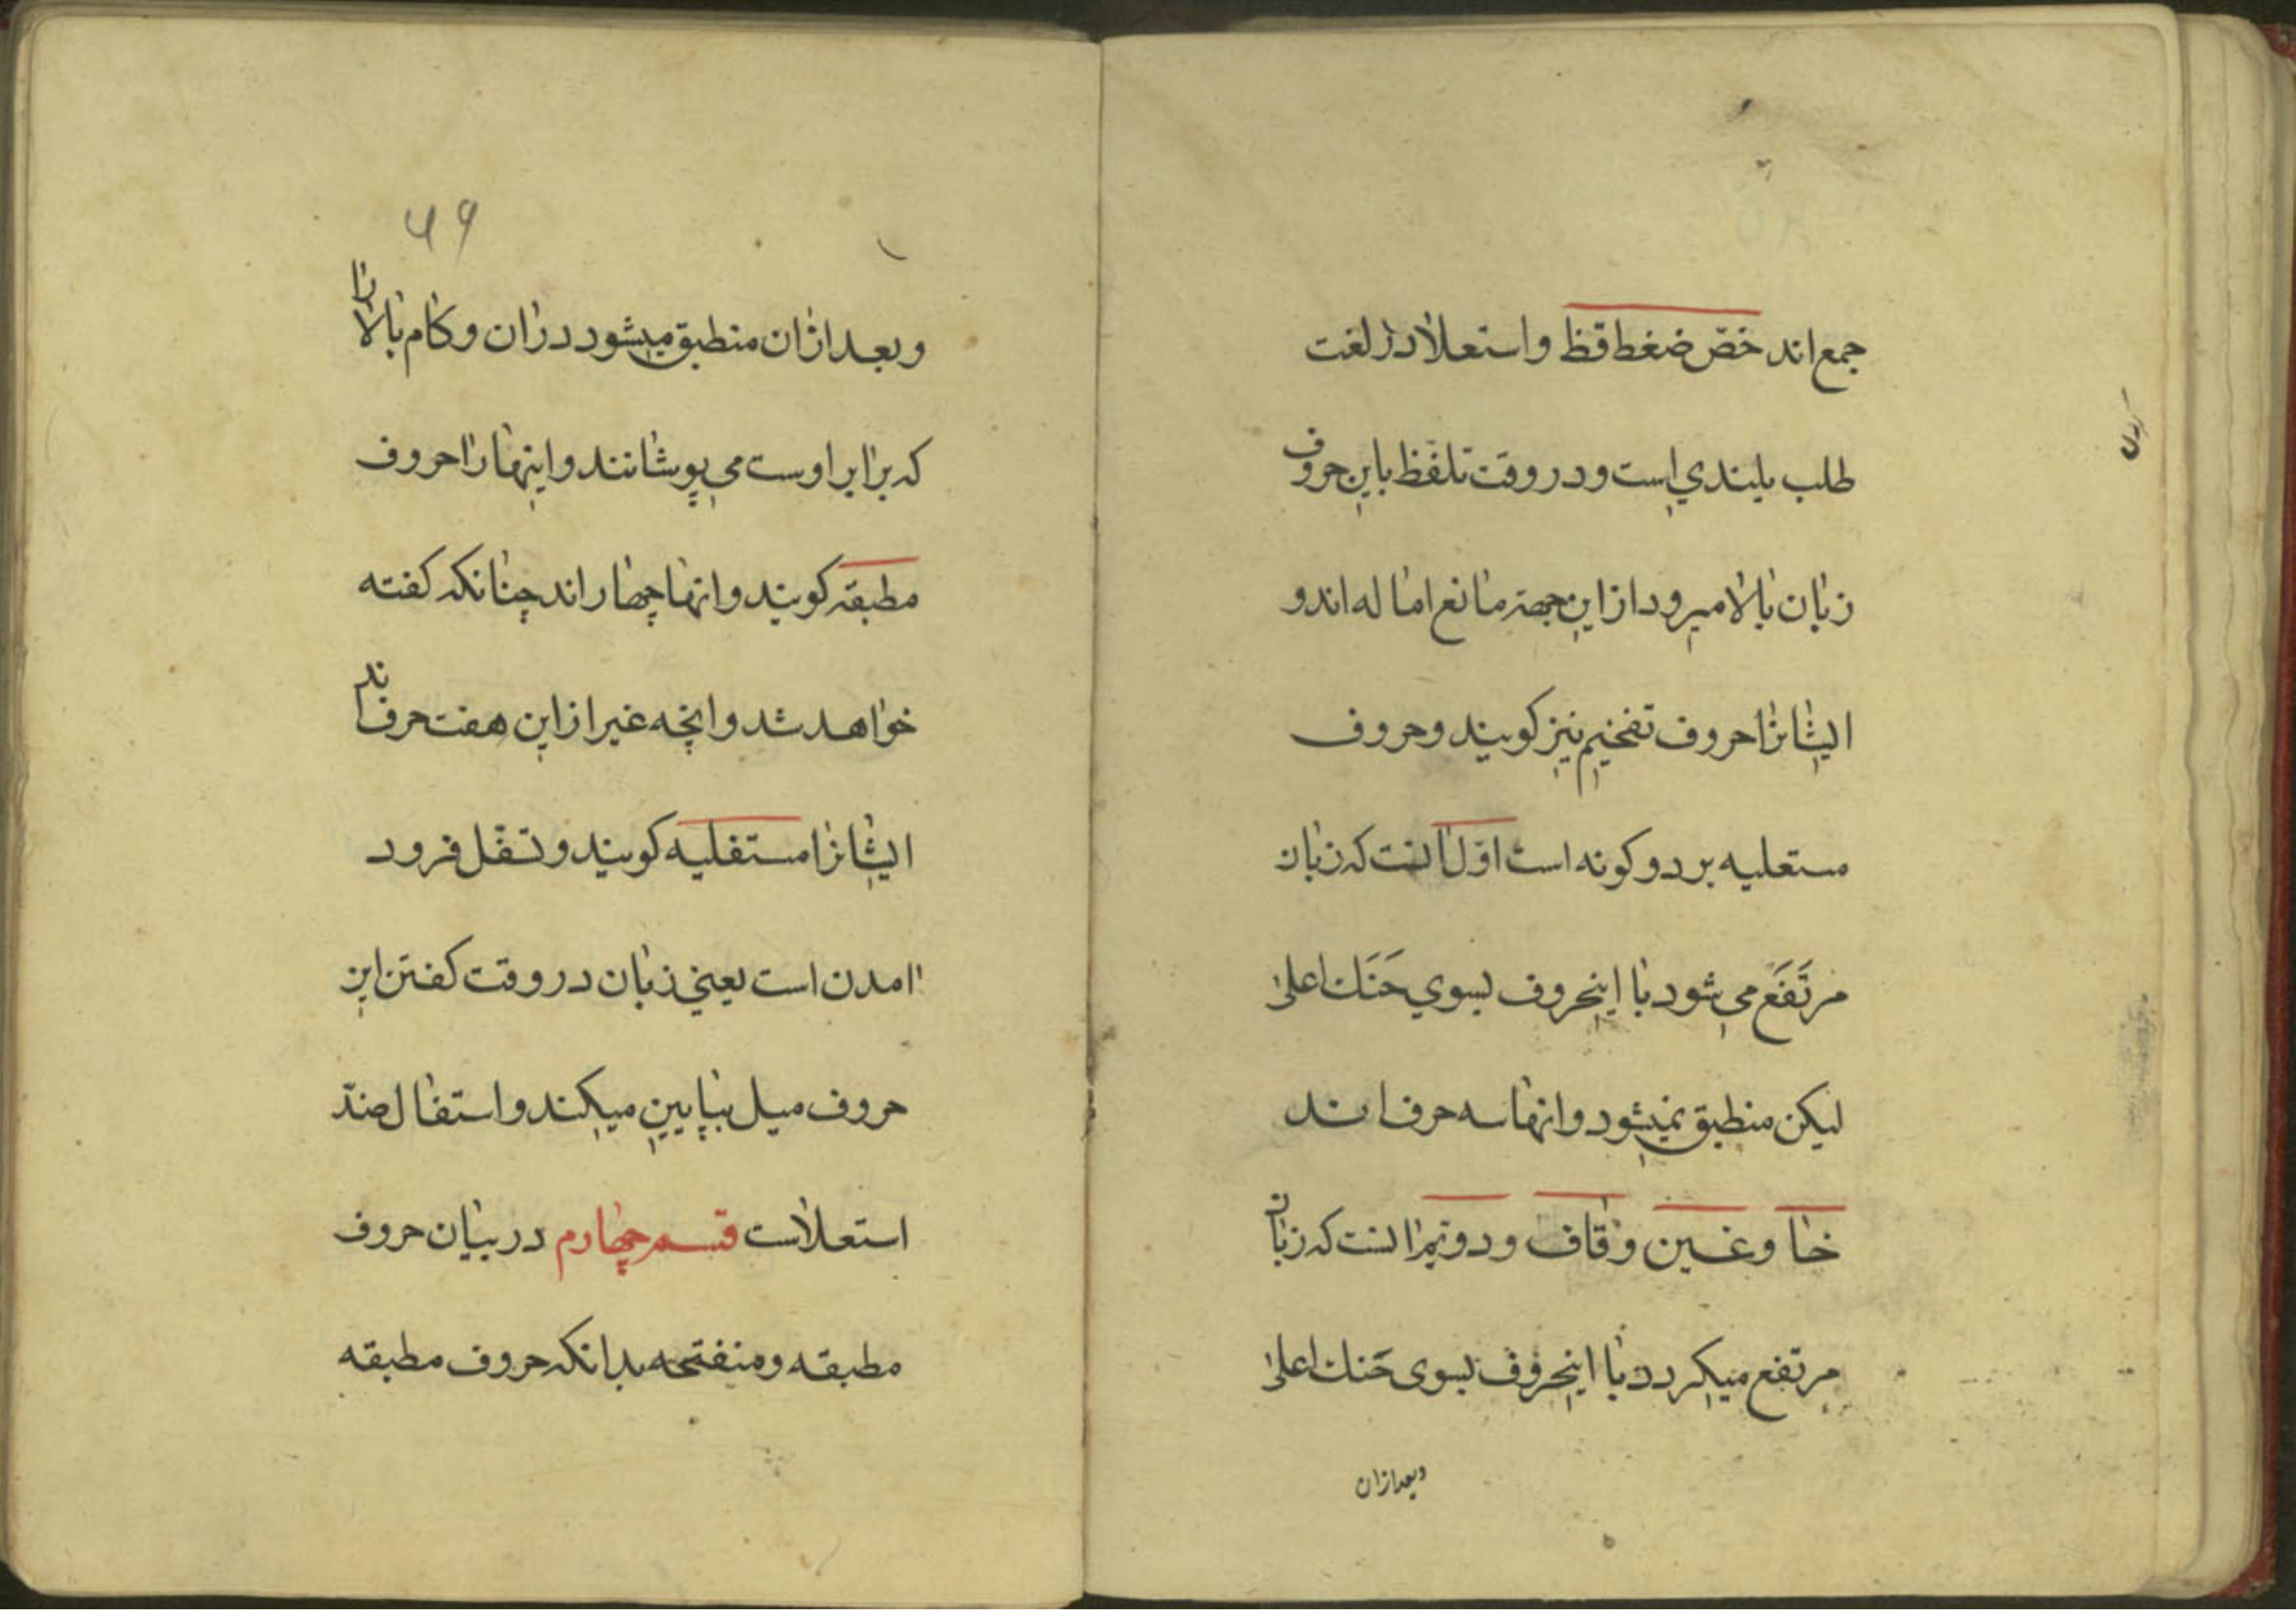 جمع اند خصّ ضغط قظ و استعلا در لغت
طلب بلندي است و در وقت تلفّظ باین حروف
زبان بالا میرود از این جهة مانع اماله اند و
ایشانرا حروف تفخیم نیز کویند و حروف
مستعلیه بر دو کونه است اوّل انست که زبان
مرتَفَع می شود با اینحروف بسوي حَنَك اعلی
لیکن منطبق نمیشود و انها سه حرف اند
خا و غین و قاف و دوّیم انست که زبان
مرتفع میکردد با اینحروف بسوی حَنك اعلی
وبعد ازان
۵۹
و بعد ازان منطبق میشود دران و کام بالا را
که برابر اوست می پوشانند و اینها را حروف
مطبقه کویند و انها چهار اند چنانکه کفته
خواهد شد و انچه غیر از این هفت حرف اند
ایشانرا مستفلیه کویند و تسفّل فرود
امدن است یعنی زبان در وقت کفتن این
حروف میل بپایین میکند و استفال ضدّ
استعلاست قسم چهارم در بیان حروف
مطبقه و منفتحه بدانکه حروف مطبقه